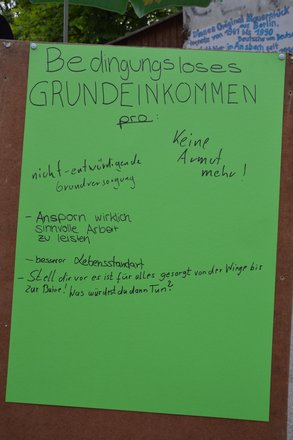 Dieses Original Mauerstück
aus Berlin.
von 1961 bis 1990
Deutsche von Deutschen
in Ansbach seit
Bedingungsloses
GRUNDEINKOMMEN
pro:
Keine
Armut
mehr!
nicht-entwürdigende
Grundversorgung
- Ansporn wirklich
sinnvolle Arbeit
zu leisten
- besserer Lebensstandart
- Stell dir vor es ist für alles gesorgt von der Wiege bis
zur Bahre! Was würdest du dann Tun?